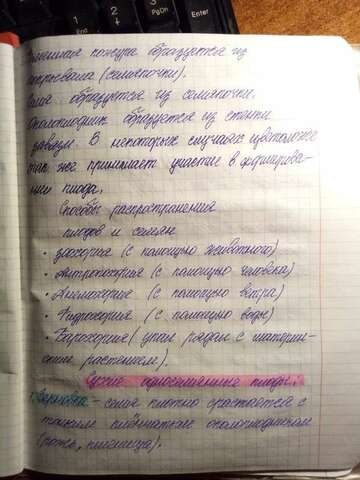 Семенная кожура образуется из
интегумента (семяпочки).
Семя образуется из семяпочки.
Околоплодник образуется из стенки
завязи. В некоторых случаях цветоложе
так же принимает участие в формирова-
нии плода.
Способы распространения
плодов и семян
· Зоохория (с помощью животного)
· Антропохория (с помощью человека)
· Анемохория (с помощью ветра)
· Гидрохория (с помощью воды)
· Барохория (упал рядом с материн-
ским растением).
Сухие односемянные плоды:
1. Зерновка - семя плотно срастается с
тонким плёнчатым околоплодником
(рожь, пшеница).
PgDn
End